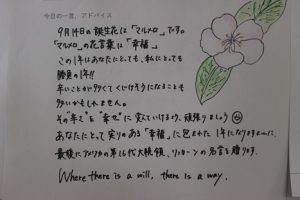 今日の一言、アドバイス
9月14日の誕生花は「マルメロ」です。
「マルメロ」の花言葉は“幸福”
この1年はあなたにとっても、私にとっても
勝負の1年!!
辛いことが多くてくじけそうになることも
多いかもしれません。
その“辛さ”を“幸せ”に変えていけるよう、頑張りましょう
あなたにとって実りのある“幸福”に包まれた1年になりますように。
最後にアメリカの第16代大統領、リンカーンの名言を贈ります。
Where there is a will, there is a way.